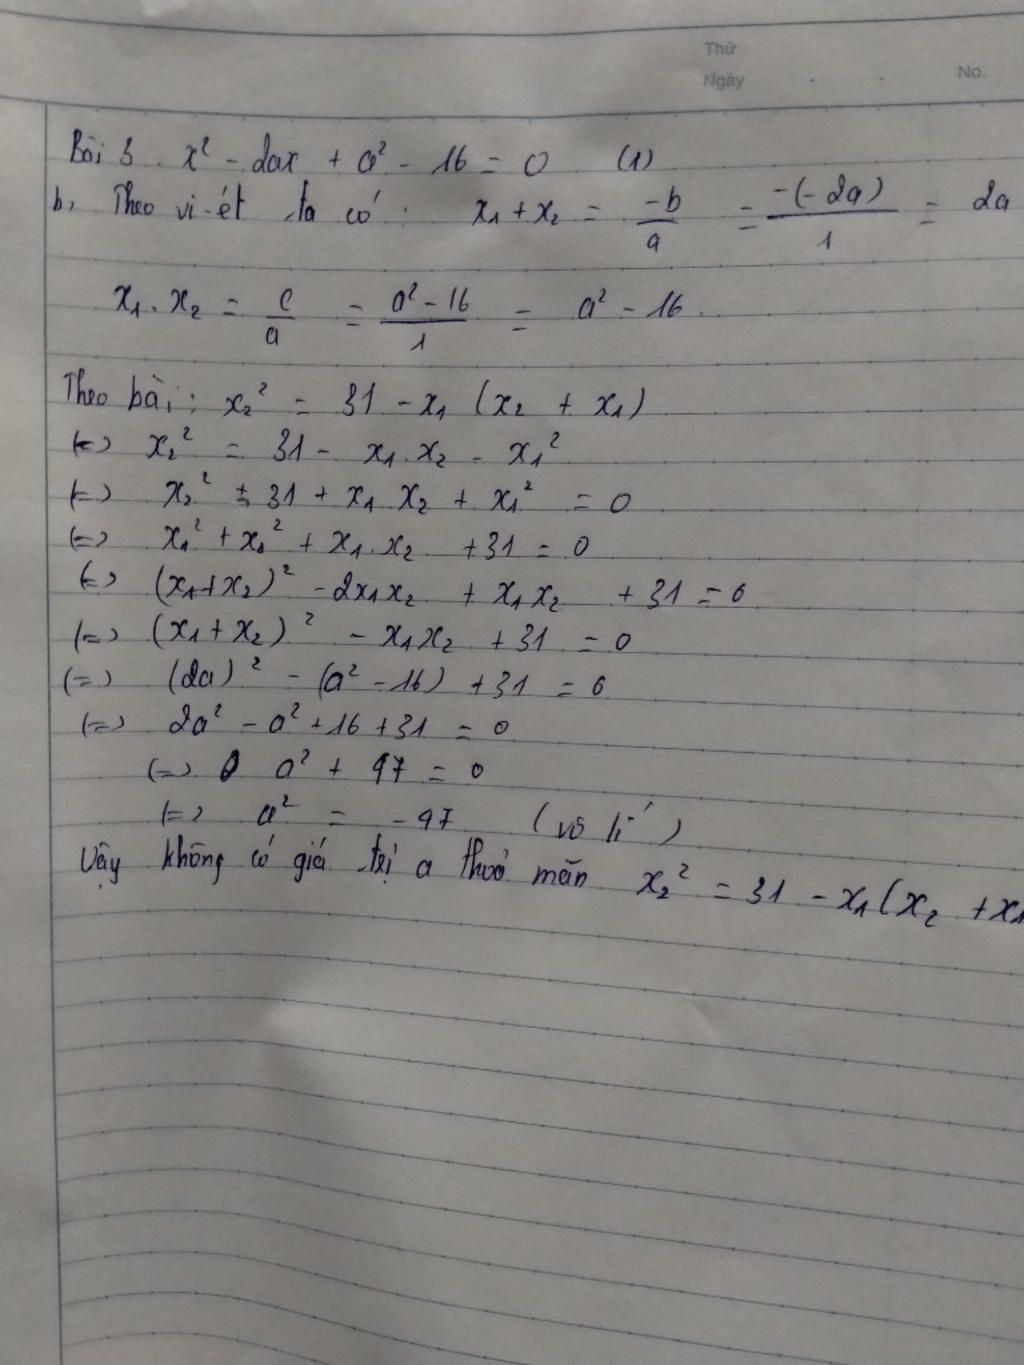 Thứ
Ngày
No.
Bài 3. x² - 2ax + a² - 16 = 0 (1)
b, Theo vi-ét ta có: x₁ + x₂ = -b/a = -(-2a)/1 = 2a
x₁. x₂ = c/a = a² - 16/1 = a² - 16.
Theo bài: x₂² = 31 - x₁ (x₂ + x₁)
(=) x₂² = 31 - x₁. x₂ - x₁²
(=) x₂² ± 31 + x₁ x₂ + x₁² = 0
(=) x₁² + x₂² + x₁. x₂ + 31 = 0
(=) (x₁+x₂)² - 2x₁x₂ + x₁x₂ + 31 = 0
(=) (x₁ + x₂)² - x₁x₂ + 31 = 0
(=) (2a)² - (a² - 16) + 31 = 0
(=) 2a² - a² + 16 + 31 = 0
(=) a² + 47 = 0
(=) a² = -47 (vô lí)
Vậy không có giá trị a thoả mãn x₂² = 31 - x₁(x₂ + x₁